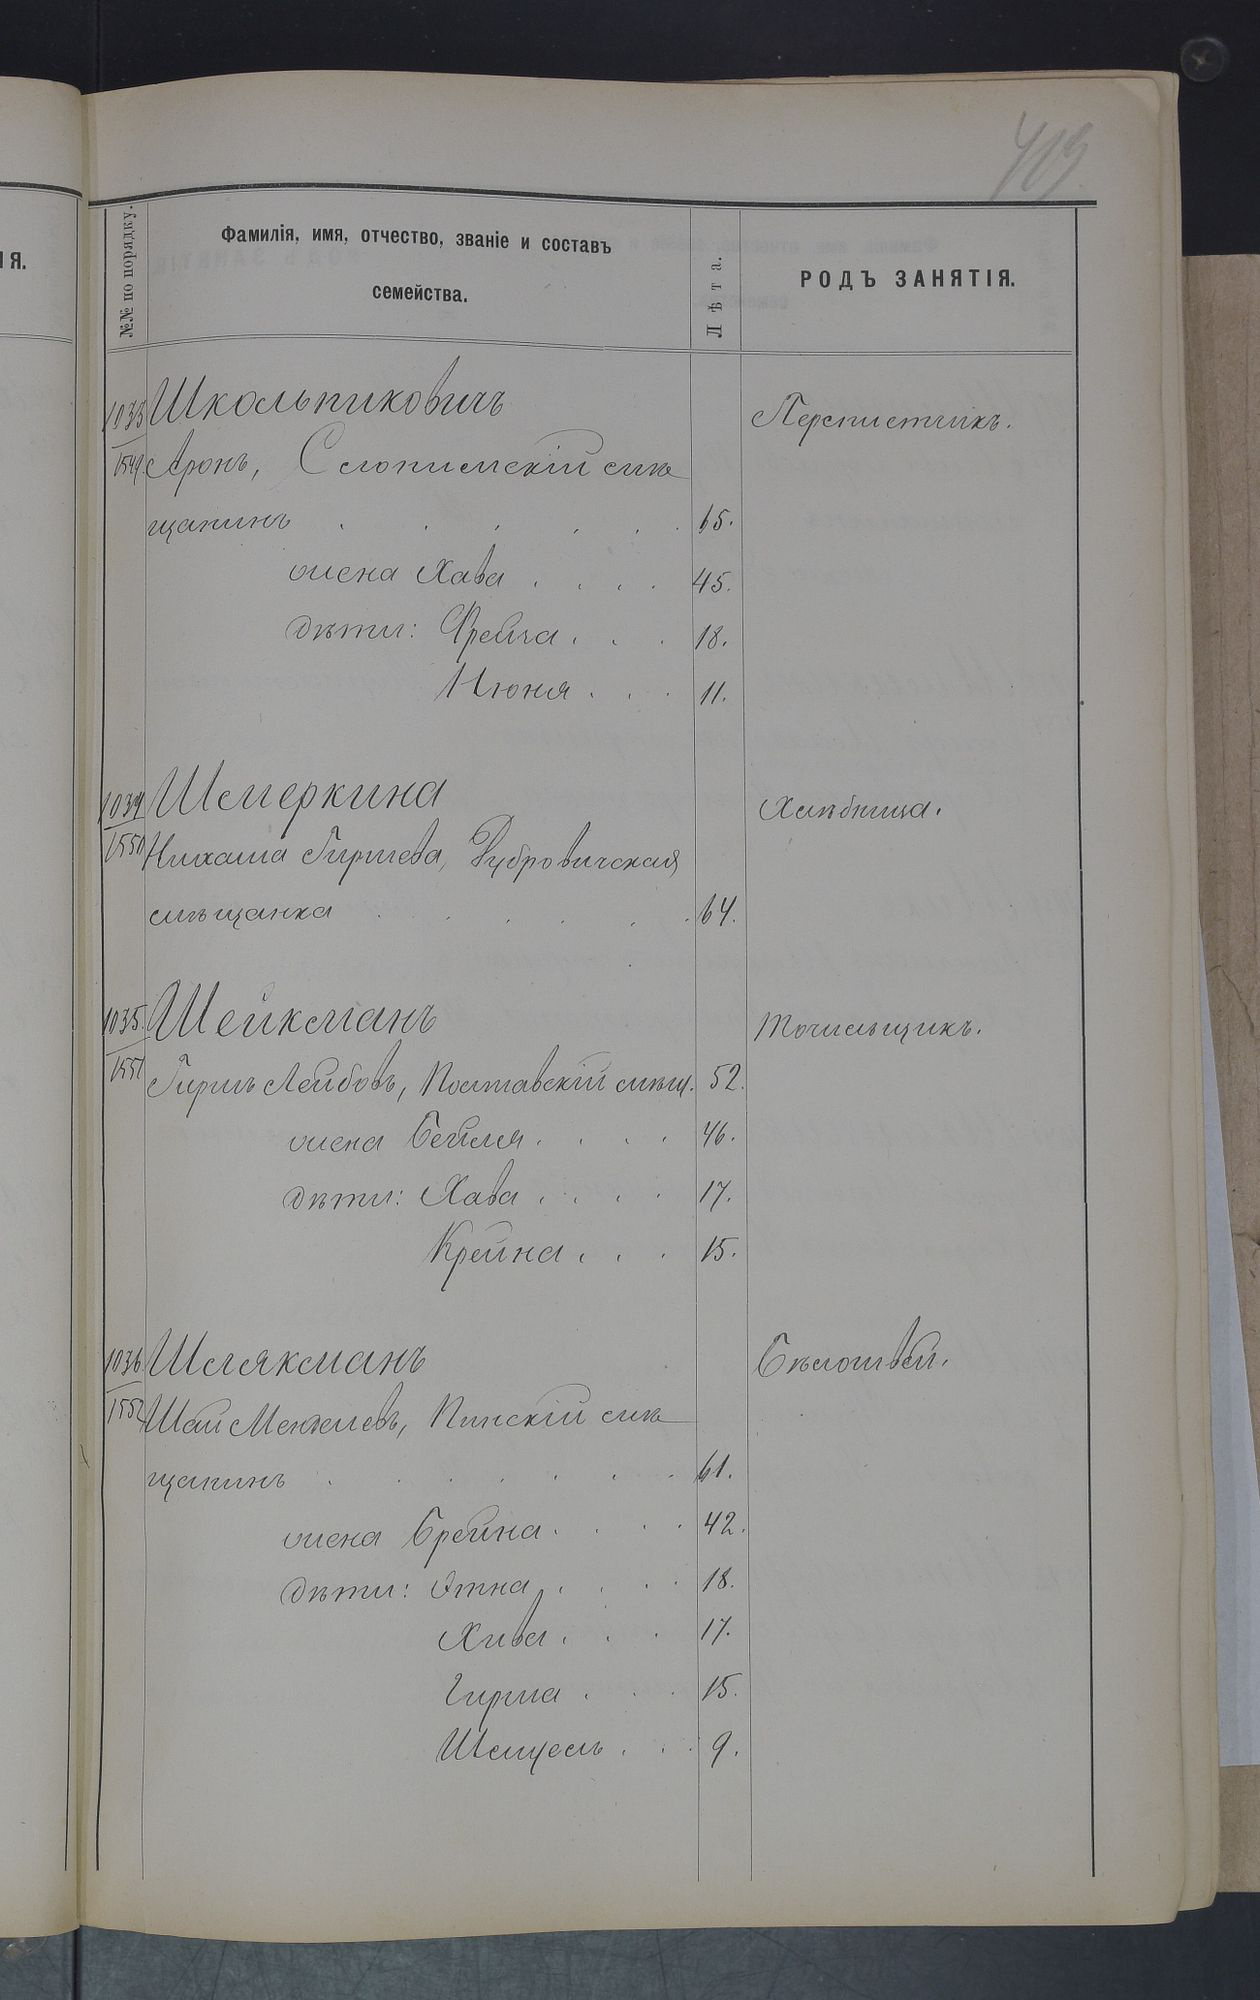 403
ІЯ.
№№ по порядку.
Фамилія, имя, отчество, званіе и составъ
семейства.
Лѣта.
РОДЪ ЗАНЯТІЯ.
1033 Школьниковичъ Переплетчикъ.
1549 Аронъ, Слонимскій мѣ
щанинъ . . . . . . 65.
жена Хава . . . . 45.
дѣти: Фрейча . . . 18.
Нюня . . . 11.
1034 Шемеркина Хлѣбница.
1550 Нихама Гиршева, Дубровичская
мѣщанка . . . . . . 64.
1035. Шейкманъ точильщикъ.
1551 Гиршъ Лейбовъ, Поставскій мѣщ. 52.
жена Бейля . . . . 46.
дѣти: Хава . . . . 17.
Крейна . . . 15.
1036. Шлякманъ Бѣлошвей.
1552 Шай Менделевъ, Пинскій мѣ
щанинъ . . . . . . . 61.
жена Брейна . . . . 42.
дѣти: Этна . . . . 18.
Хива . . . 17.
Гирша . . . 15.
Шмуель . . . 9.